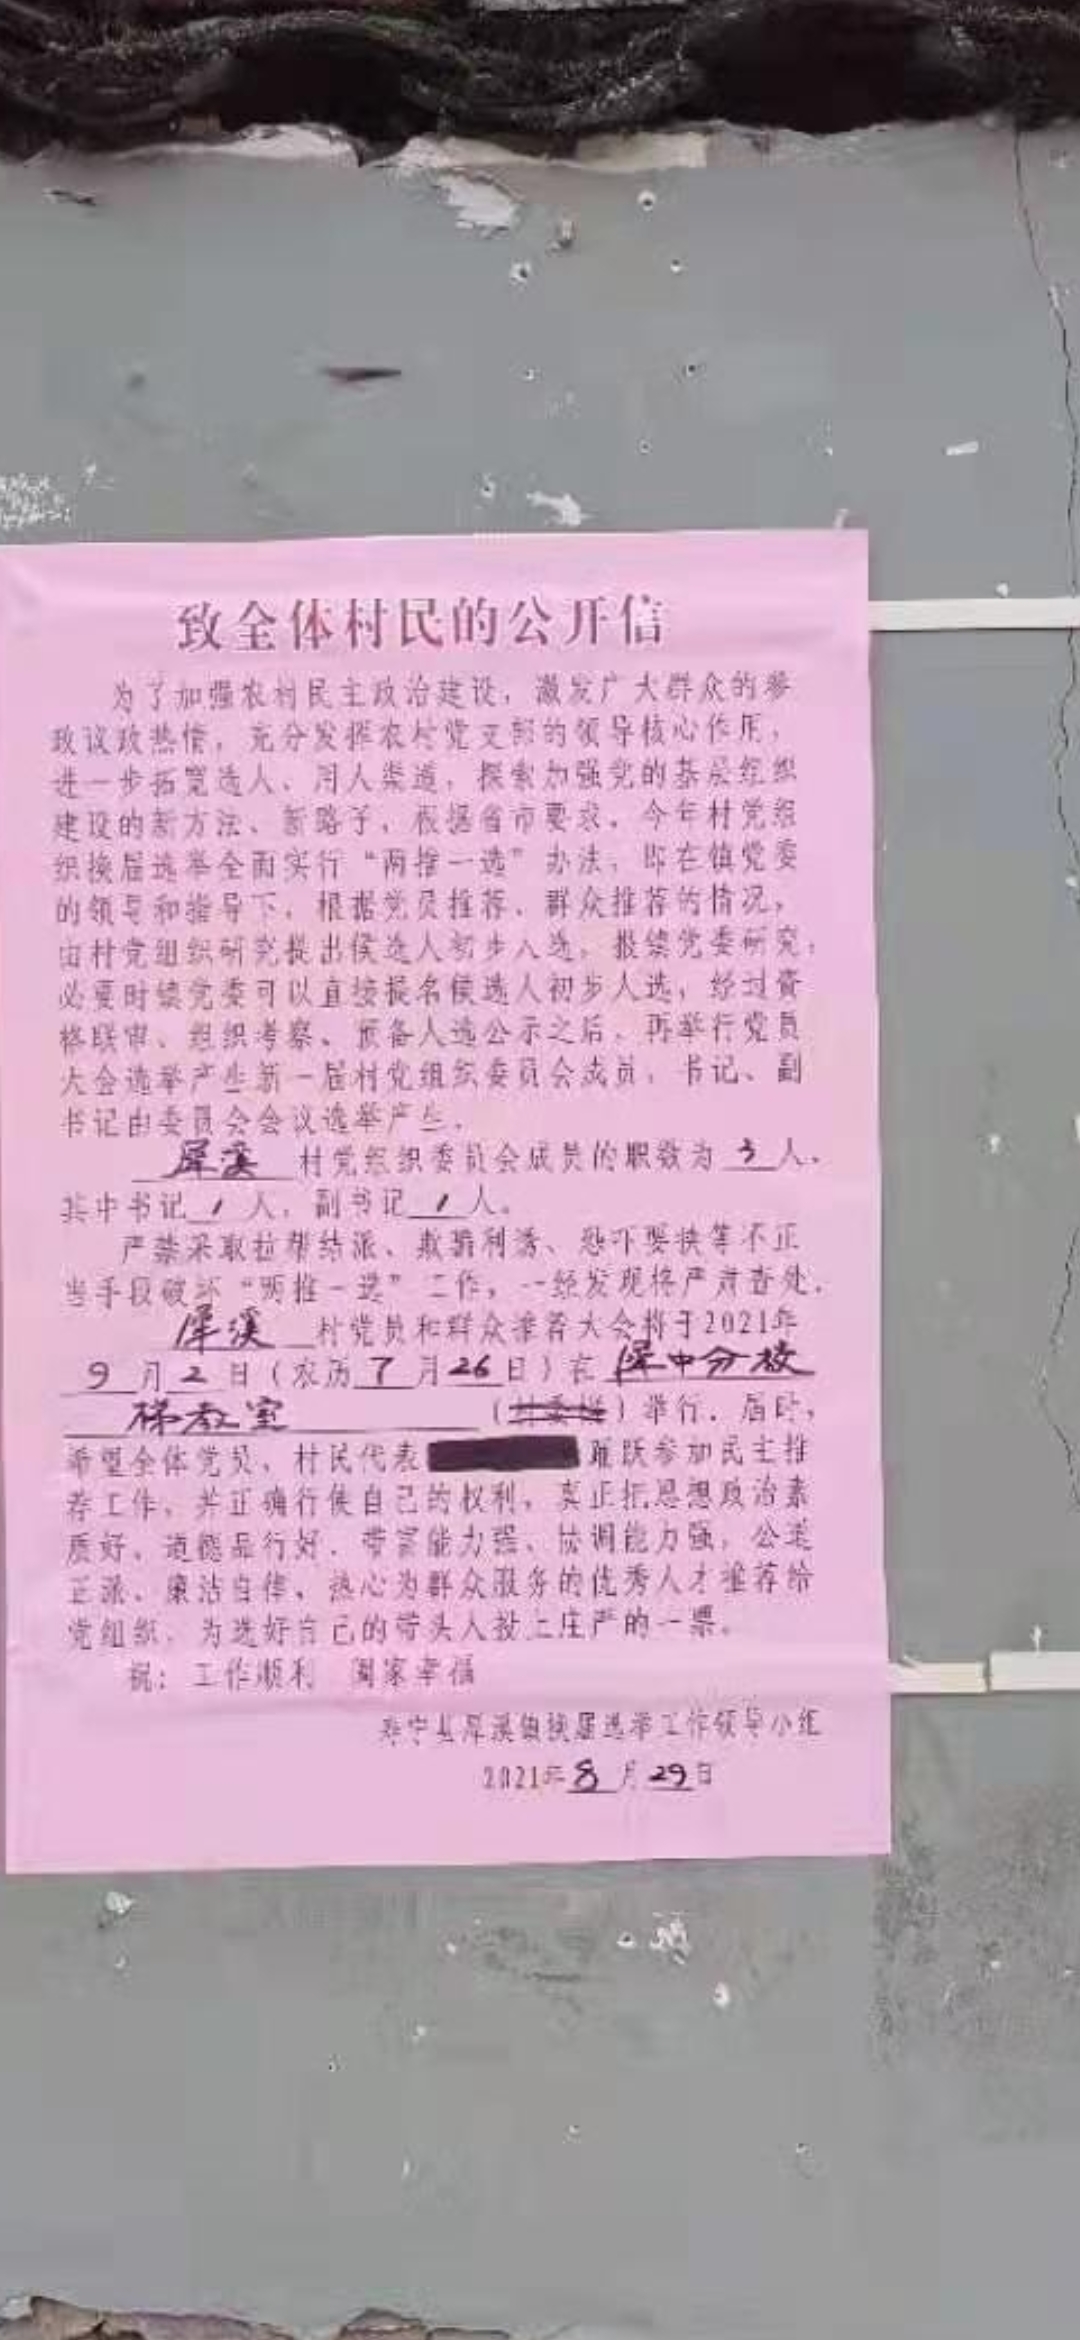 致全体村民的公开信
为了加强农村民主政治建设，激发广大群众的参
政议政热情，充分发挥农村党支部的领导核心作用，
进一步拓宽选人、用人渠道，探索加强党的基层组织
建设的新方法、新路子，根据省市要求，今年村党组
织换届选举全面实行“两推一选”办法，即在镇党委
的领导和指导下，根据党员推荐、群众推荐的情况，
由村党组织研究提出候选人初步人选，报镇党委研究，
必要时镇党委可以直接提名候选人初步人选，经过资
格联审、组织考察、预备人选公示之后，再举行党员
大会选举产生新一届村党组织委员会成员，书记、副
书记由委员会会议选举产生。
犀溪 村党组织委员会成员的职数为 3 人，
其中书记 1 人，副书记 1 人。
严禁采取拉帮结派、欺骗利诱、恐吓要挟等不正
当手段破坏“两推一选”工作，一经发现将严肃查处。
犀溪 村党员和群众推荐大会将于2021年
9 月 2 日（农历 7 月 26 日）在 犀中分校
梯教室 （村委楼）举行。届时，
希望全体党员、村民代表 踊跃参加民主推
荐工作，并正确行使自己的权利，真正把思想政治素
质好、道德品行好、带富能力强、协调能力强，公道
正派、廉洁自律、热心为群众服务的优秀人才推荐给
党组织，为选好自己的带头人投上庄严的一票。
祝：工作顺利 阖家幸福
寿宁县犀溪镇换届选举工作领导小组
2021年 8 月 29 日